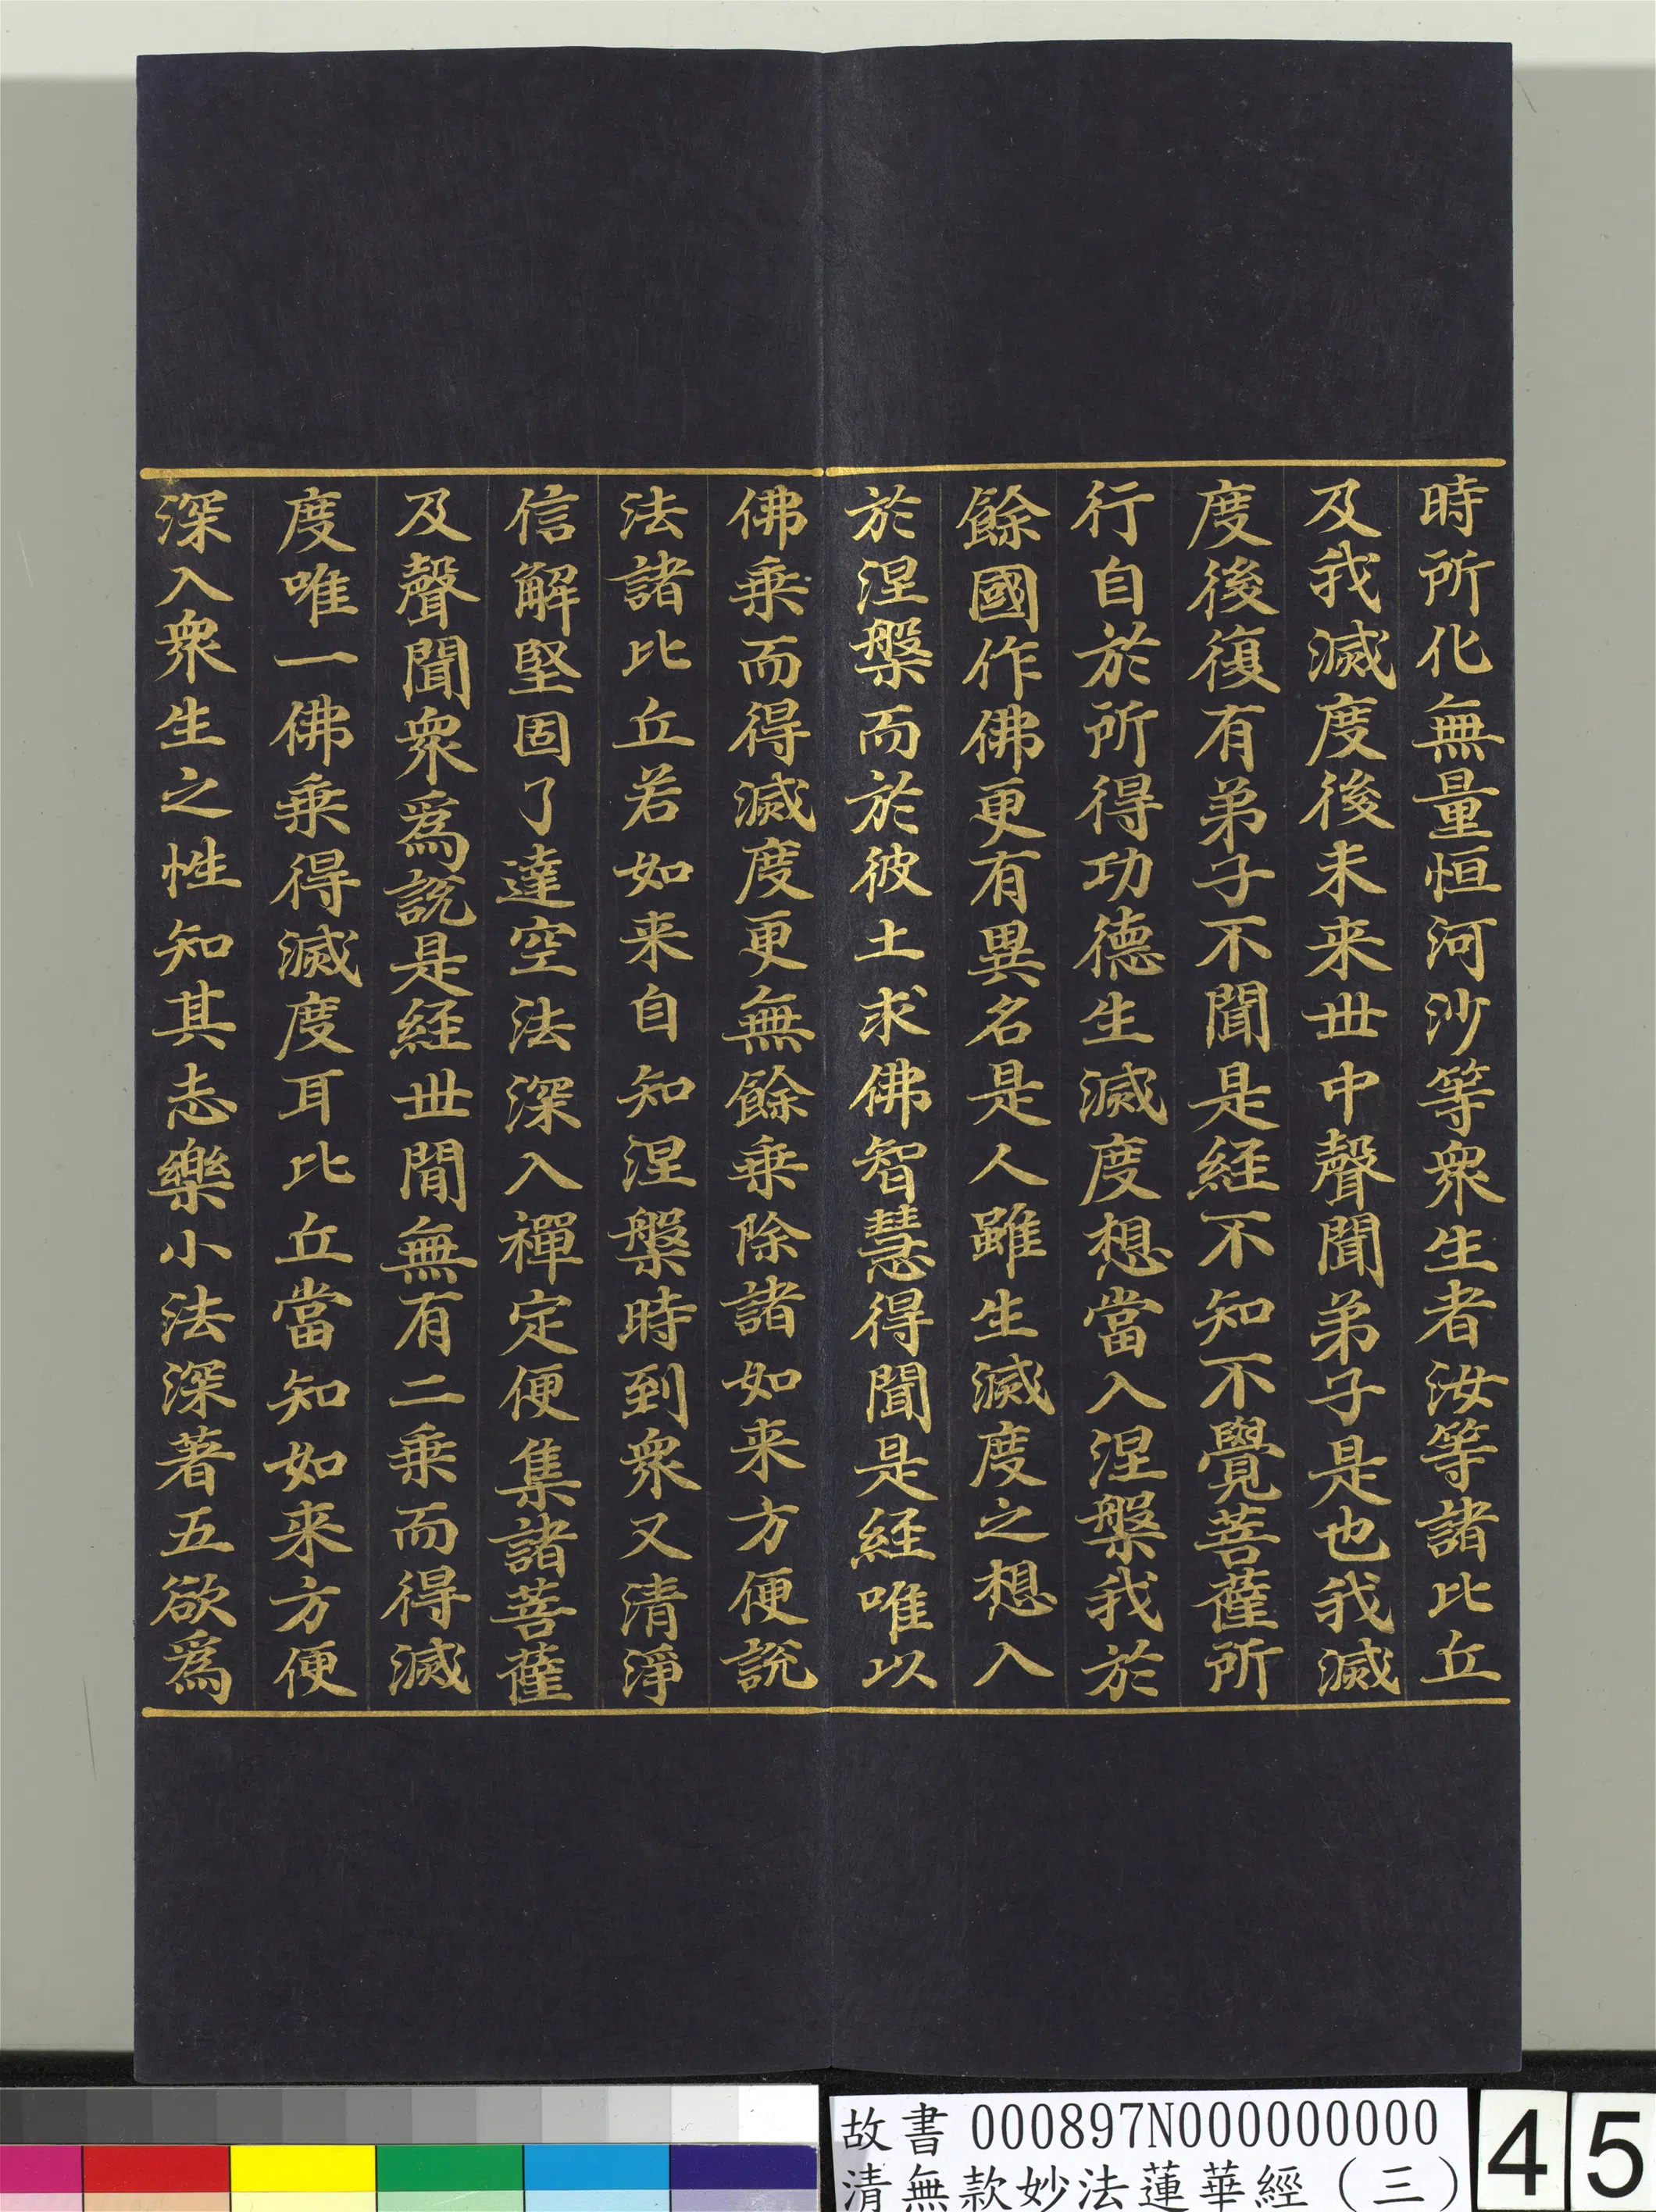 時所化無量恒河沙等衆生者汝等諸比丘
及我滅度後未来世中聲聞弟子是也我滅
度後復有弟子不聞是経不知不覺菩薩所
行自於所得功德生滅度想當入涅槃我於
餘國作佛更有異名是人雖生滅度之想入
於涅槃而於彼土求佛智慧得聞是経唯以
佛乗而得滅度更無餘乗除諸如来方便說
法諸比丘若如来自知涅槃時到衆又清淨
信解堅固了達空法深入禪定便集諸菩薩
及聲聞衆爲說是経世間無有二乗而得滅
度唯一佛乗得滅度耳比丘當知如来方便
深入衆生之性知其志樂小法深著五欲爲
故書 000897N000000000
清無款妙法蓮華經（三）
45